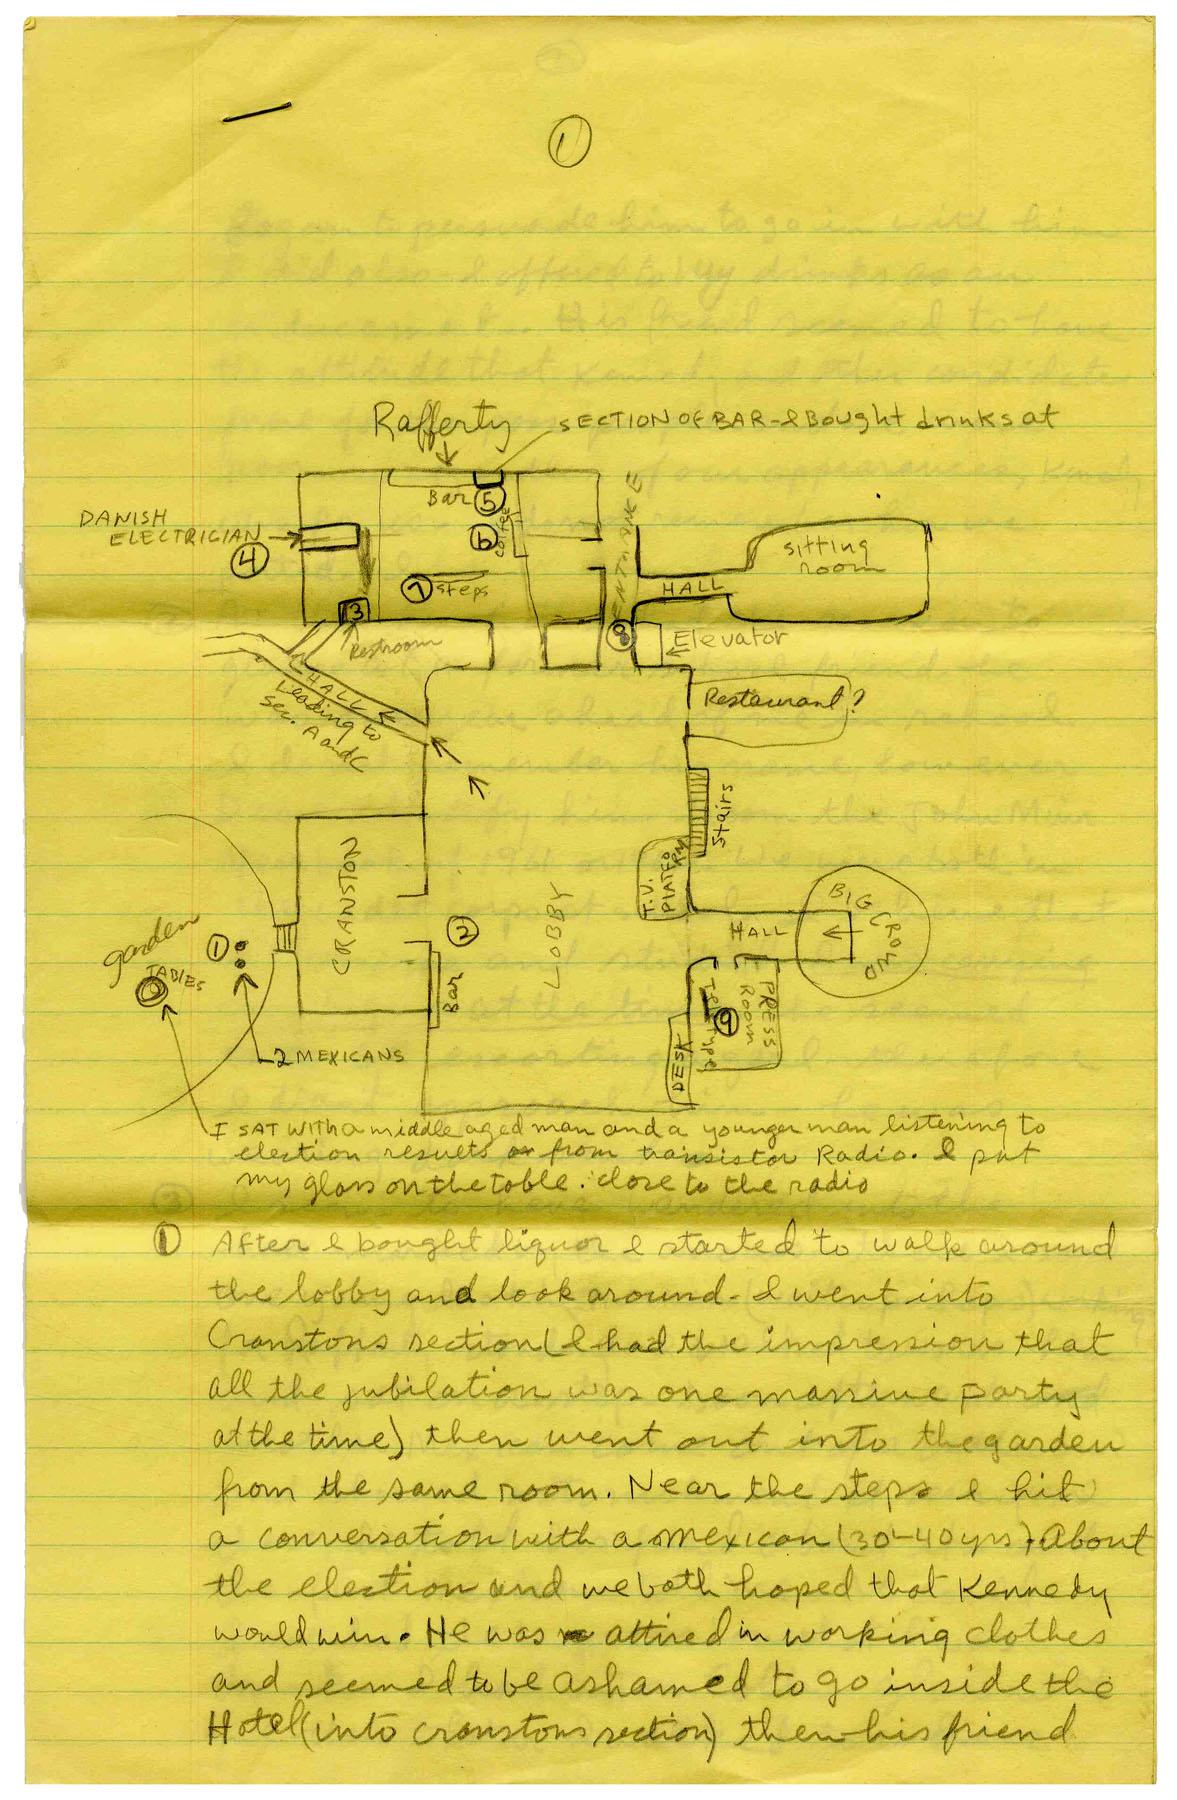 1
Rafferty
SECTION OF BAR - I Bought drinks at
Bar 5
DANISH
ELECTRICIAN
4
6
coffee
ENTRANCE
sitting
room
7 steps
HALL
3
Restroom
8
Elevator
HALL
Leading to
sec. A and C
Restaurant?
Stairs
T.V.
PLATFORM
CRANSTON
LOBBY
2
BIG CROWD
HALL
garden
TABLES
1
Bar
PRESS
Room
9
DESK
2 MEXICANS
I SAT WITH a middle aged man and a younger man listening to
election results from transistor Radio. I put
my glass on the table. close to the radio
1 After I bought liquor I started to walk around
the lobby and look around - I went into
Cranstons section (I had the impression that
all the jubilation was one massive party
at the time) then went out into the garden
from the same room. Near the steps I hit
a conversation with a mexican (30-40 yrs) About
the election and we both hoped that Kennedy
would win. He was attired in working clothes
and seemed to be ashamed to go inside the
Hotel (into cranstons section) then his friend